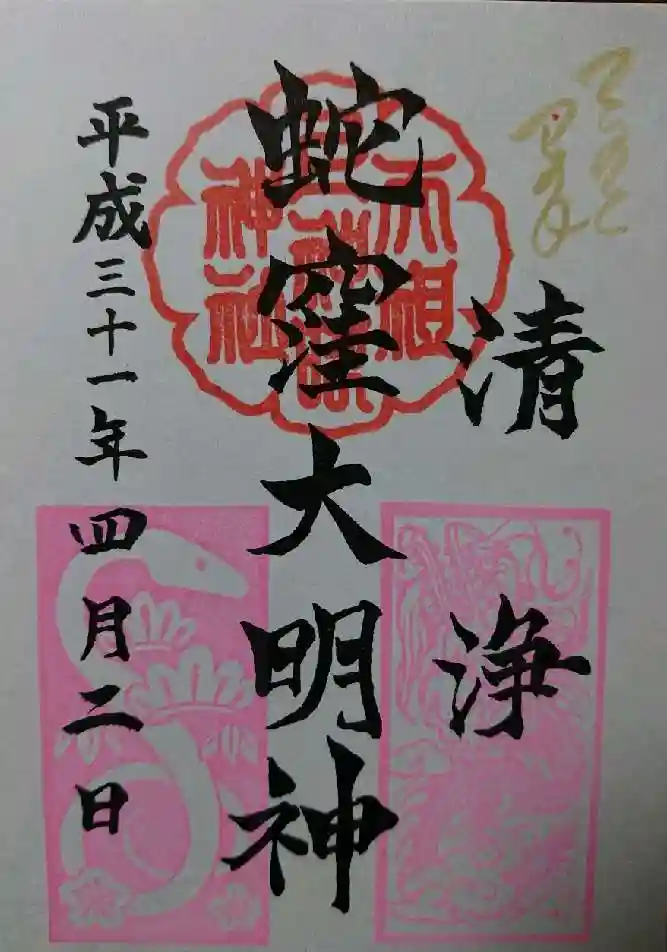 清浄
蛇窪大明神
平成三十一年四月二日
天祖
神社